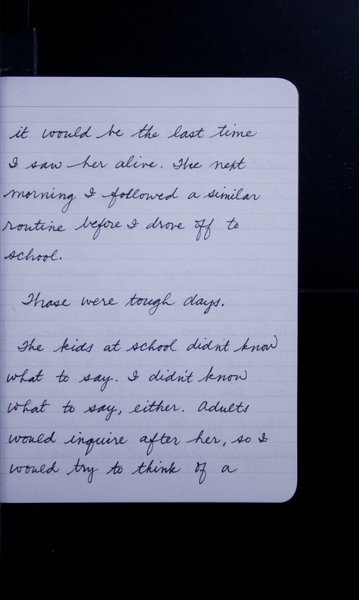 it would be the last time
I saw her alive. The next
morning I followed a similar
routine before I drove off to
school.
Those were tough days.
The kids at school didn't know
what to say. I didn't know
what to say, either. Adults
would inquire after her, so I
would try to think of a